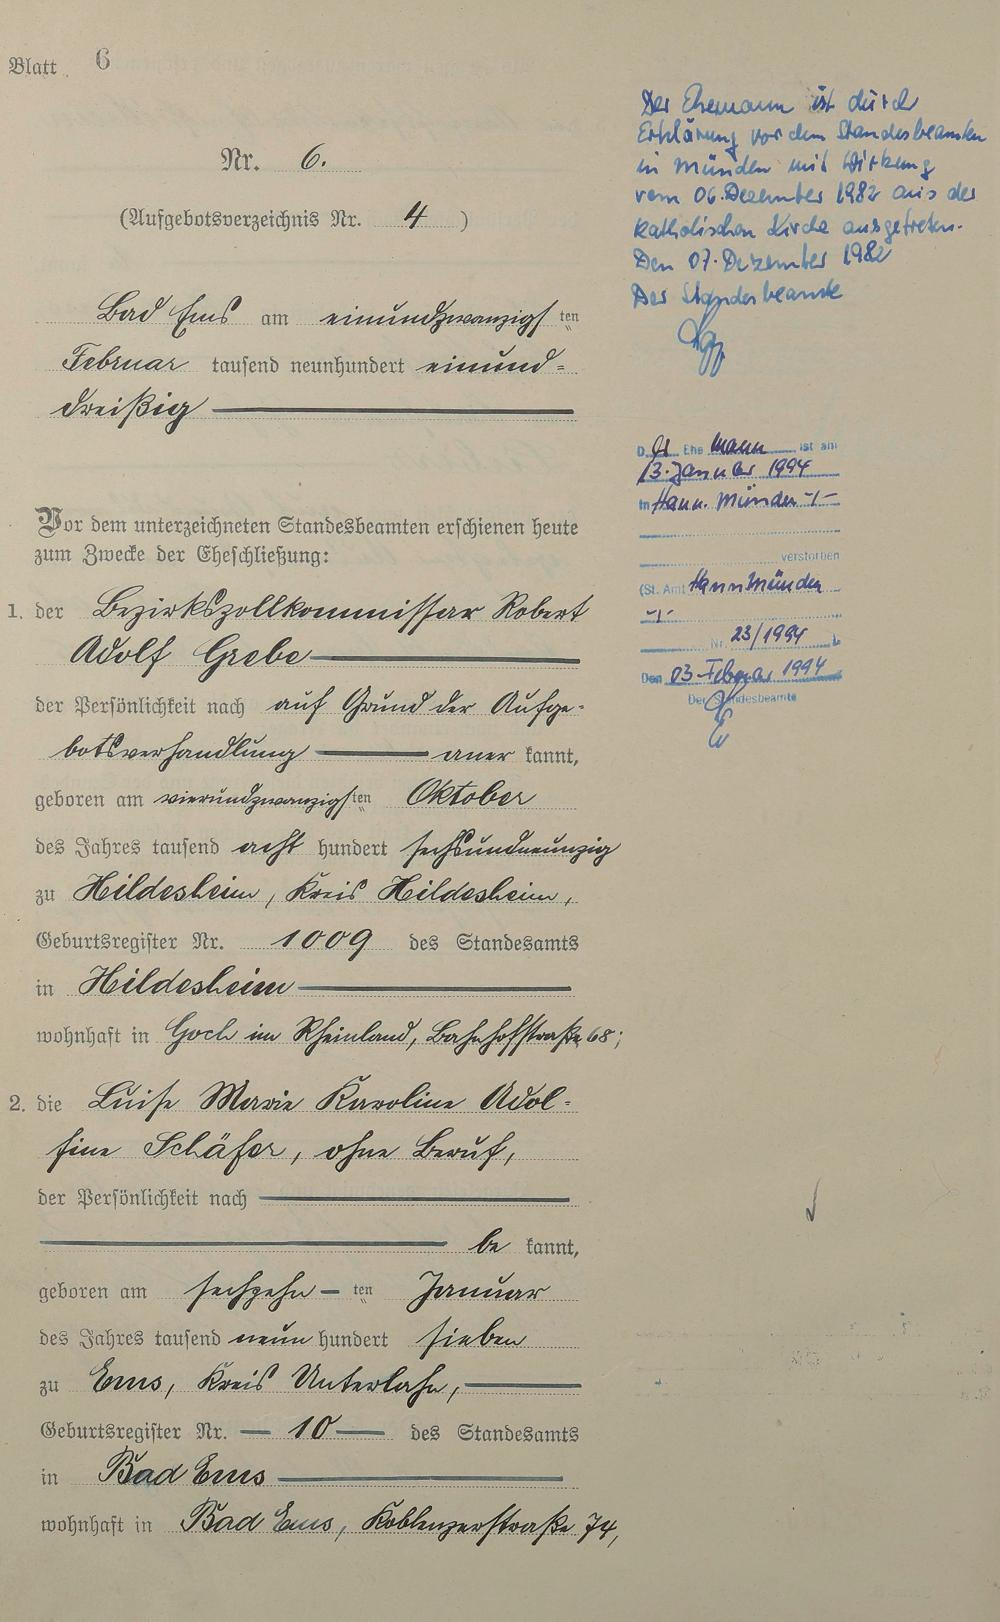 Blatt 6
Nr. 6.
(Aufgebotsverzeichnis Nr. 4)
Bad Ems am einundzwanzigsten
Februar tausend neunhundert einund=
dreißig
Vor dem unterzeichneten Standesbeamten erschienen heute
zum Zwecke der Eheschließung:
1. der Bezirkszollkommissar Robert
Adolf Grebe
der Persönlichkeit nach auf Grund der Aufge-
botsverhandlung aner kannt,
geboren am vierundzwanzigsten Oktober
des Jahres tausend acht hundert sechsundneunzig
zu Hildesheim, Kreis Hildesheim,
Geburtsregister Nr. 1009 des Standesamts
in Hildesheim
wohnhaft in Goch im Rheinland, Bahnhofstraße 68;
2. die Luise Marie Karoline Adol-
fine Schäfer, ohne Beruf,
der Persönlichkeit nach
be kannt,
geboren am sechzehn- ten Januar
des Jahres tausend neun hundert sieben
zu Ems, Kreis Unterlahn,
Geburtsregister Nr. 10 des Standesamts
in Bad Ems
wohnhaft in Bad Ems, Koblenzerstraße 74,
Der Ehemann ist durch
Erklärung vor dem Standesbeamten
in Münden mit Wirkung
vom 06. Dezember 1982 aus der
katholischen Kirche ausgetreten.
Den 07. Dezember 1982
Der Standesbeamte
Der Ehe mann ist am
13. Januar 1994
in Hann. Münden -/-
verstorben
(St. Amt Hann Münden
-/-
Nr. 23/1994
Den 03. Februar 1994
Der Standesbeamte